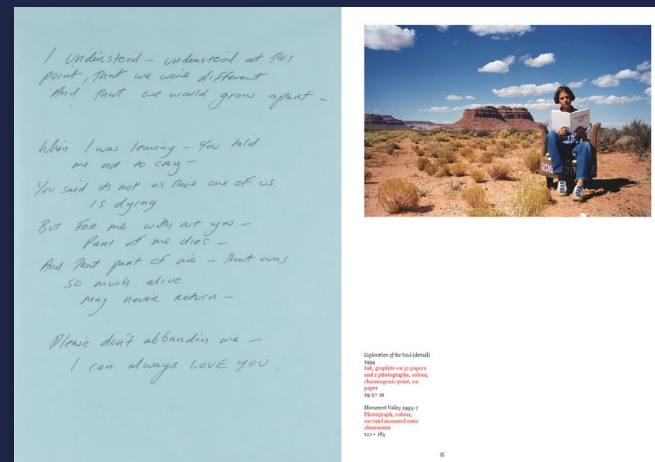 I understood – understood at this
point, that we were different.
And that we would grow apart –
When I was leaving – You told
me not to cry –
You said its not as thoe one of us
is dying
But For me with out you –
Part of me dies –
And That part of me – That was
so much alive
May never return –
Please don't abbandin me –
I can always LOVE YOU.
Exploration of the Soul (detail)
1994
Ink, graphite on 32 papers
and 2 photographs, colour,
chromogenic print, on
paper
29.5 × 21
Monument Valley 1995–7
Photograph, colour,
on vinyl mounted onto
aluminium
122 × 183
35